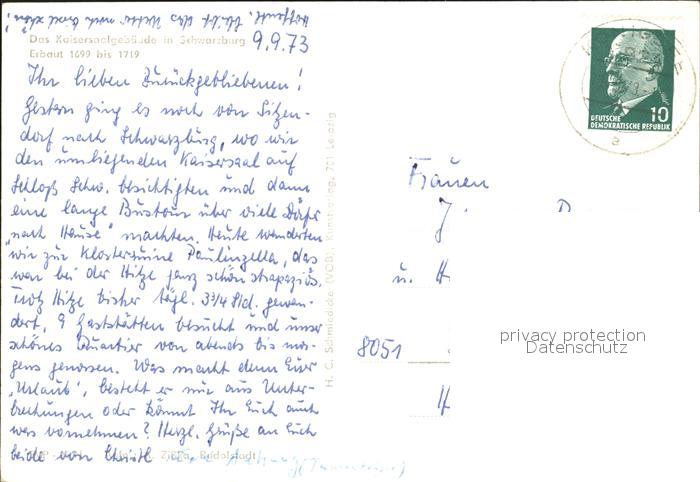 Hoffentl. bleibt das Wetter noch so schön!
Das Kaisersaalgebäude in Schwarzburg
Erbaut 1699 bis 1719
9.9.73
Ihr lieben Zurückgebliebenen!
Gestern ging es noch von Sitzen-
dorf nach Schwarzburg, wo wir
den umliegenden Kaisersaal auf
Schloß Schw. besichtigten und dann
eine lange Bustour über viele Dörfer
"nach Hause" machten. Heute wanderten
wir zur Klosterruine Paulinzella, das
war bei der Hitze ganz schön strapaziös.
Trotz Hitze bisher tägl. 3 3/4 Std. gewan-
dert, 9 Gaststätten besucht und unser
schönes Quartier von abends bis mor-
gens genossen. Was macht denn Euer
"Urlaub", besteht er nur aus Unter-
brechungen oder könnt Ihr Euch auch
was vornehmen? Herzl. Grüße an Euch
beide von Christl
Rudolstadt
H. C. Schmiedicke (VOB), Kunstverlag, 701 Leipzig
DEUTSCHE
DEMOKRATISCHE REPUBLIK
10
a
Frauen
J.
u. H
8051
H
privacy protection
Datenschutz